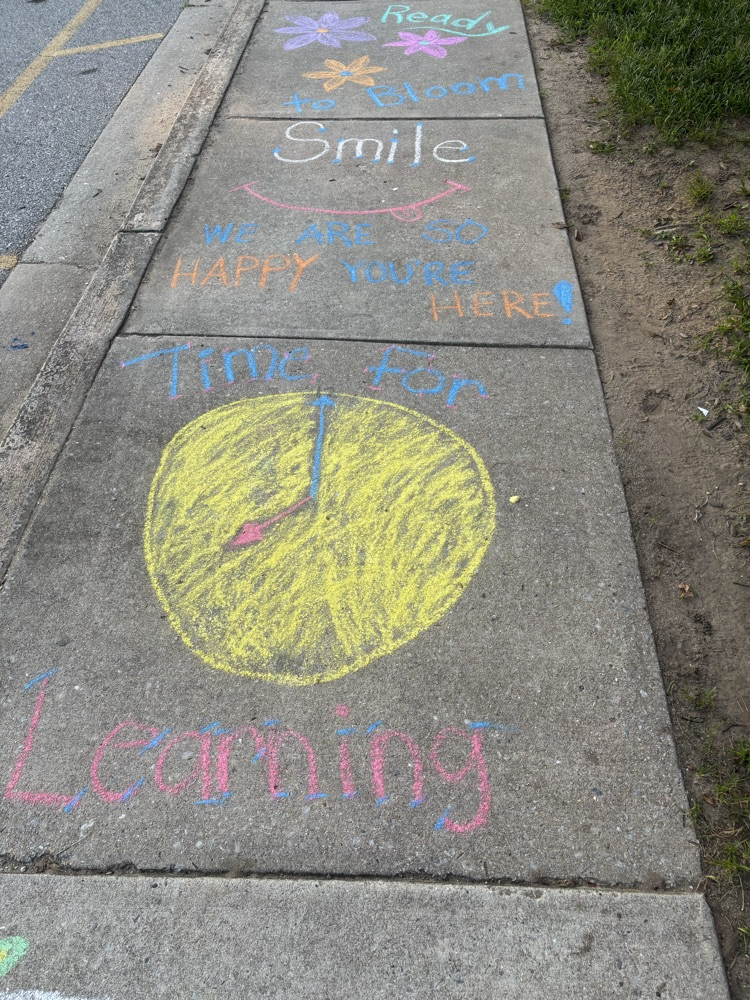 Ready
to Bloom
Smile
WE ARE SO
HAPPY YOU'RE
HERE!
Time for
Learning